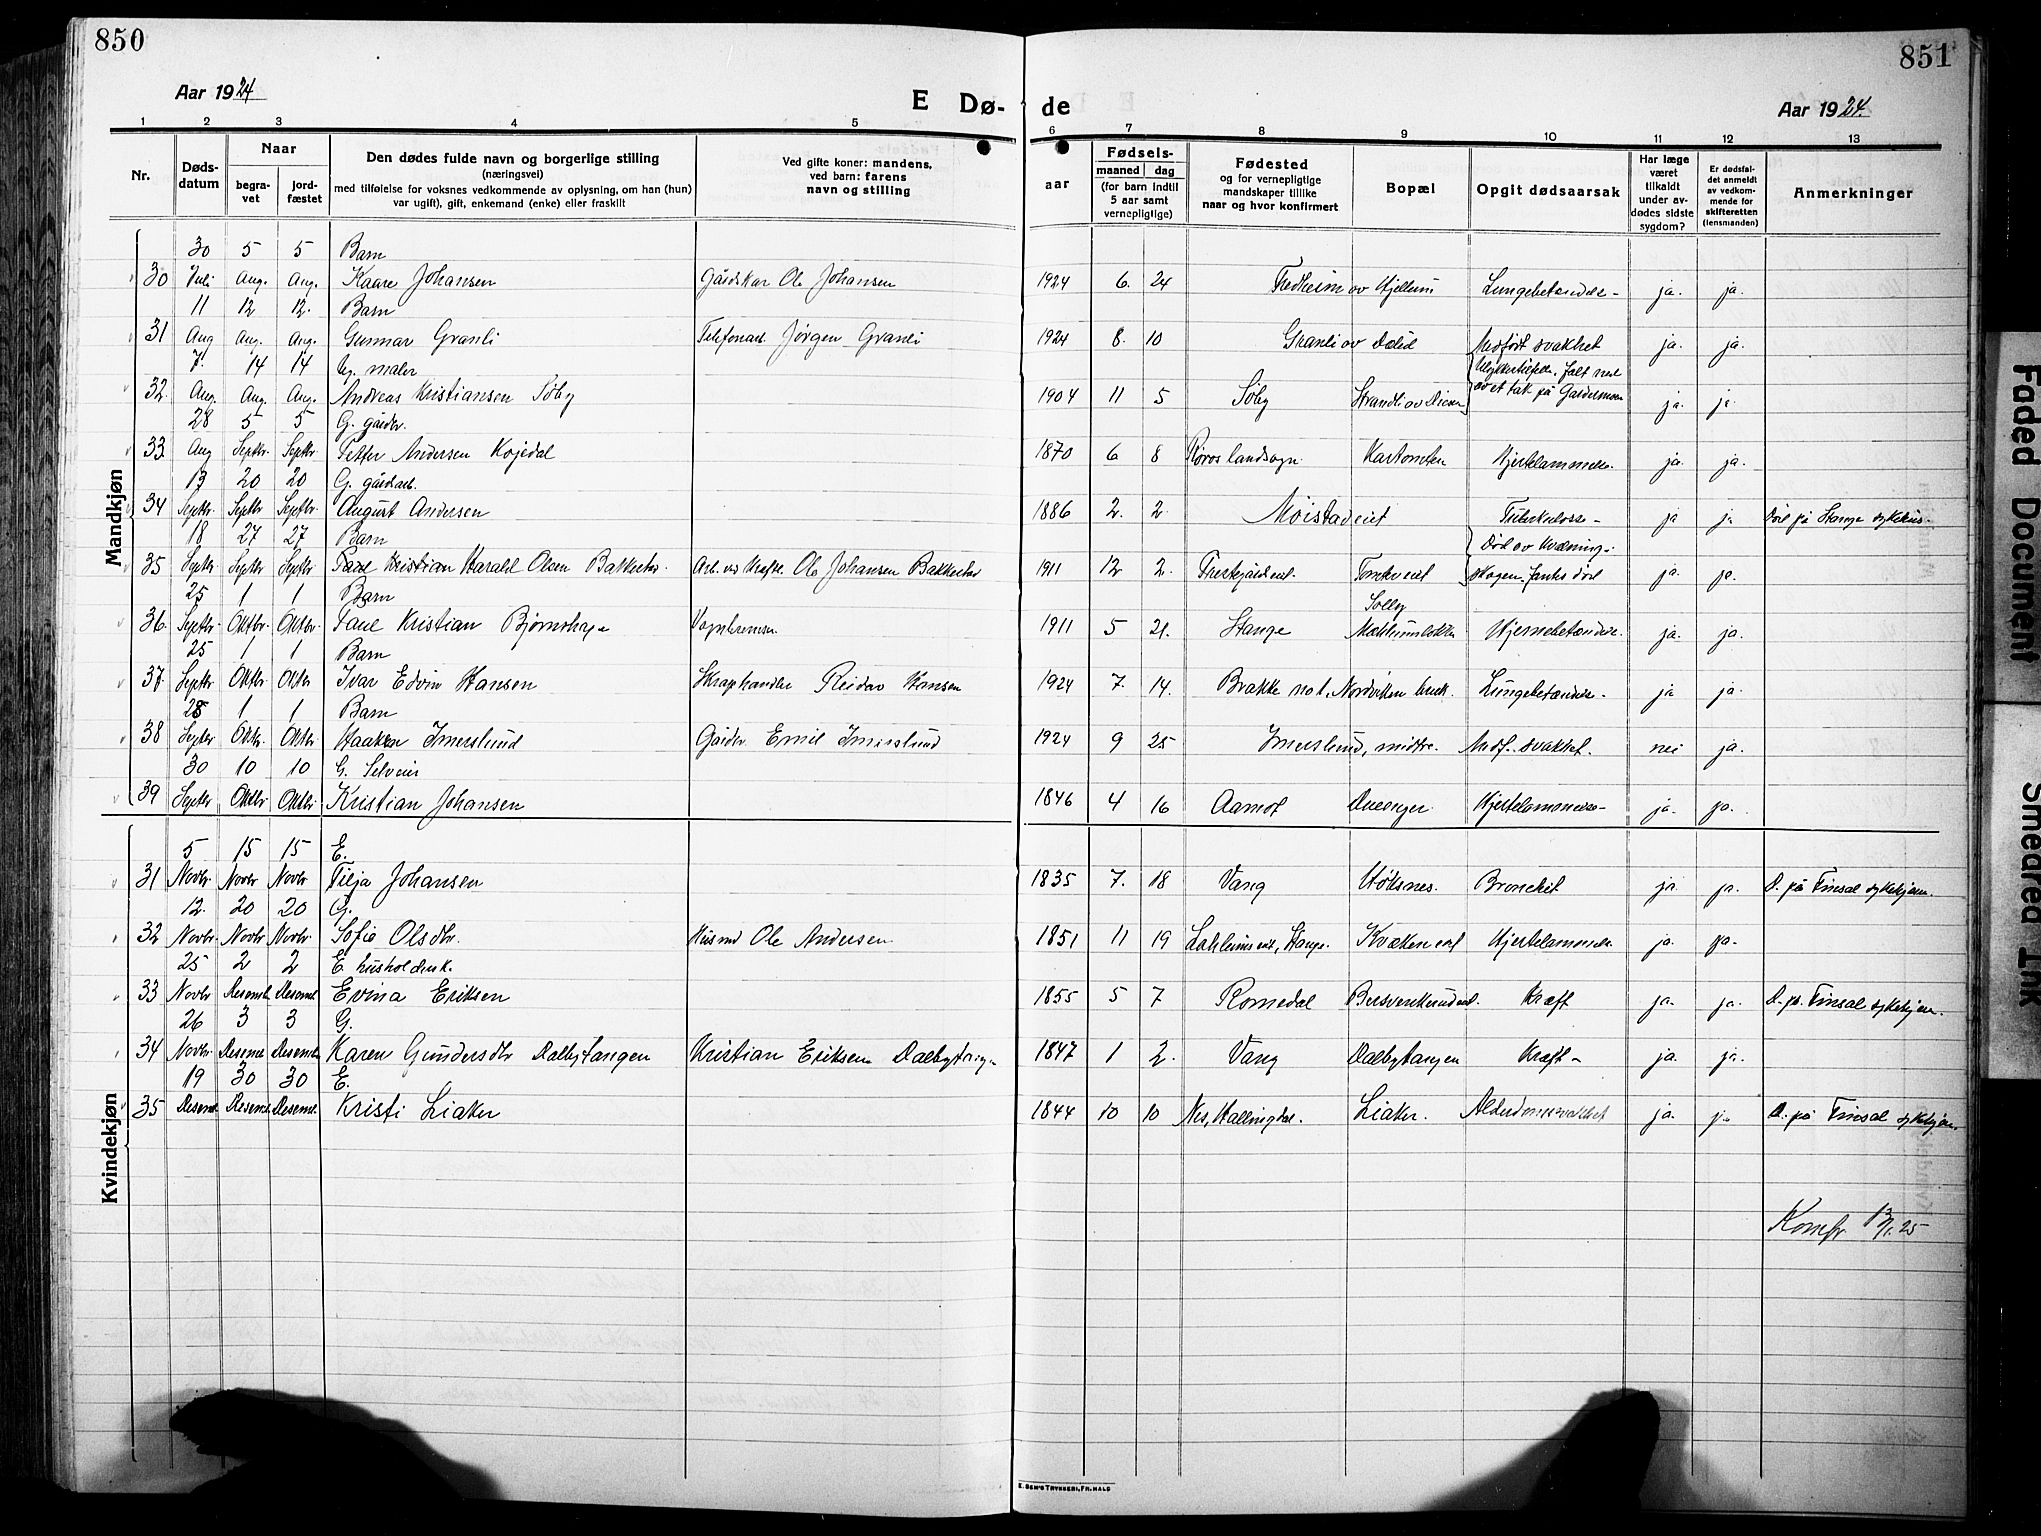 850
851
Aar 1924
E Dø-
de
Aar 1924.
1 2 3 4 5 6 7 8 9 10 11 12 13
Nr.
Døds-
datum
Naar
begra-
vet
jord-
fæstet
Den dødes fulde navn og borgerlige stilling
(næringsvei)
med tilføielse for voksnes vedkommende av oplysning, om han (hun)
var ugift), gift, enkemand (enke) eller fraskilt
Ved gifte koner: mandens,
ved barn: farens
navn og stilling
aar
Fødsels-
maaned dag
(for barn indtil
5 aar samt
vernepligtige)
Fødested
og for vernepligtige
mandskaper tillike
naar og hvor konfirmert
Bopæl
Opgit dødsaarsak
Har læge
været
tilkaldt
under av-
dødes sidste
sygdom?
Er dødsfal-
det anmeldt
av vedkom-
mende for
skifteretten
(lensmanden)
Anmerkninger
Mandkjøn
30 5 5 Barn
30 Juli Aug. Aug. Kaare Johansen Gårdskar Ole Johansen 1924 6. 24 Fredheim av Hjellum Lungebetændelse - ja. ja.
11 12 12. Barn
31 Aug Aug. Aug. Gunnar Granli Telefonarb. Jørgen Granli 1924 8. 10 Granli av Dælid Medfødt svakhet ja. ja.
7. 14 14 Ug. maler Ulykkestilfelle. Falt ned
32. Aug. Aug. Aug. Andreas Kristiansen Söby 1904 11 5 Söby Strandli av Dicen av et tak på Gardermoen ja. ja
28 5 5 G. gårdbr.
33. Aug Septbr. Septbr Petter Andersen Kojedal 1870 6 8 Röros landsogn. Hjertelammelse. ja. ja.
13 20 20 G. gårdsarb.
34 Septbr. Septbr Septbr. August Andersen 1886 2. 2 Moistadeiet Tuberkulose - ja ja Död på Stange sykehus.
18 27 27 Barn Död av kvælning.
35 Septbr Septbr Septbr. Paul Kristian Harald Olsen Bakkestad. Arb. ved Kraftst. Ole Johansen Bakkestad 1911 12 2. Tomter eiet skogen. Fantes död ja. ja.
25 1 1 Barn Solby
36. Septbr. Oktbr. Oktbr. Paul Kristian Björnshage Vognbremser. 1911 5 21. Stange Mæhlumslökken Hjernebetændelse. ja. ja.
25 1 1 Barn
37. Septbr Oktbr Oktbr Ivar Edvin Hansen Skraphandler Reidar Hansen 1924 7. 14. Brakke no 1, Nordviken bruk. Lungebetændelse - ja ja.
28 1 1 Barn
38 Septbr Oktbr. Oktbr Haakon Imerslund Gårdbr. Emil Imerslund 1924 9 25 Imerslund, midtre. Medf. svakhet. nei ja.
30 10 10 G. Selveier
39 Septbr Oktbr Oktbr. Kristian Johansen 1846 4 16 Aamot Duenger. Hjertelammelse - ja. ja.
Kvindekjøn
5 15 15 E.
31 Novbr. Novbr Novbr Tilja Johansen 1835 7. 18 Vang Höksnes. Bronchit ja. ja. D. på Finsal sykehjem.
12. 20 20 G.
32 Novbr. Novbr Novbr. Sofie Olsdtr. Husmd Ole Andersen 1851 11 19 Kvæken eiet Hjertelammelse. ja. ja.
25 2 2 E. husholderske.
33 Novbr Desembr. Desembr. Evina Eriksen 1855 5 7 Romedal Kræft ja. ja. D. på Finsal sykehjem.
26 3 3 G.
34 Novbr. Desembr Desembr. Karen Gundersdtr Dalbytangen Kristian Eriksen Dalbytangen 1847 1 2. Vang Dalbytangen Kræft - ja. ja.
19 30 30 E.
35 Desembr. Desembr. Desembr. Kristi Liaker 1844 10 10 Nes, Hallingdal. Liaker. Alderdomssvakhet ja. ja D. på Finsal sykehjem.
Komfr. 13/1. 25
E. SEM'S TRYKKERI, FR. HALD
Faded Document
Smeared Ink